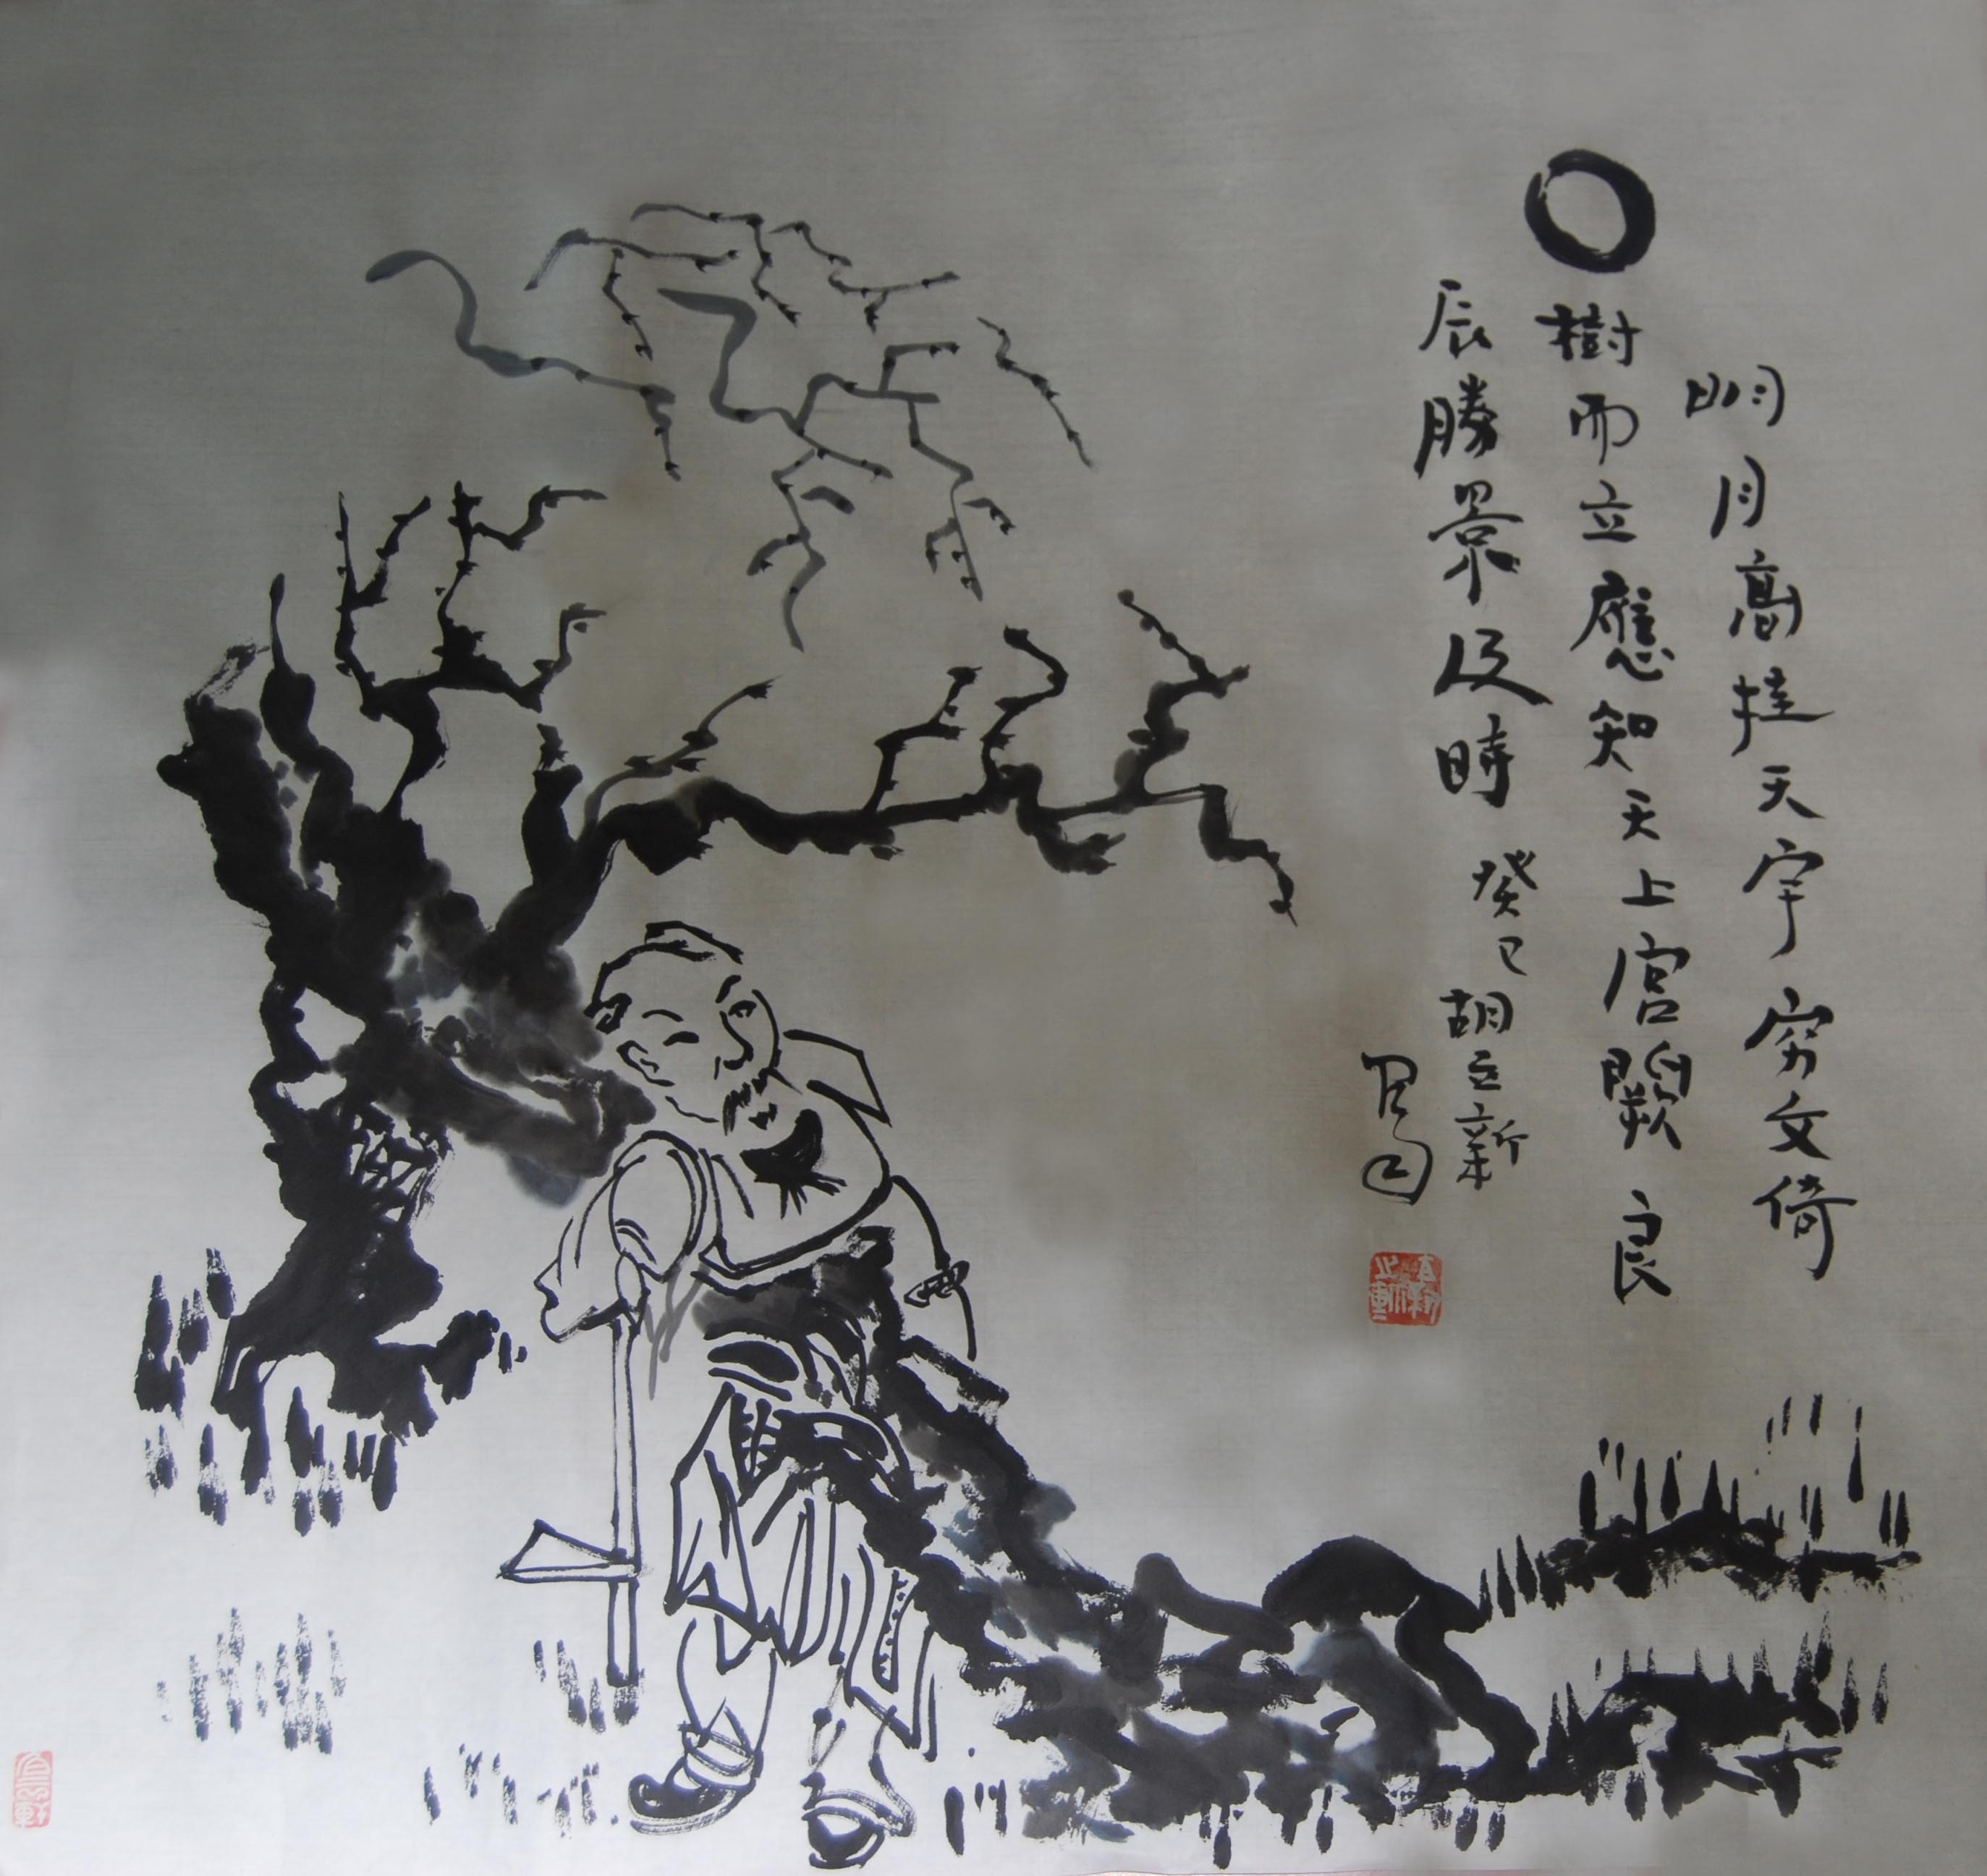 明月高挂天宇穷文倚
樹而立應知天上宫闕良
辰勝景及時 癸巳胡立新